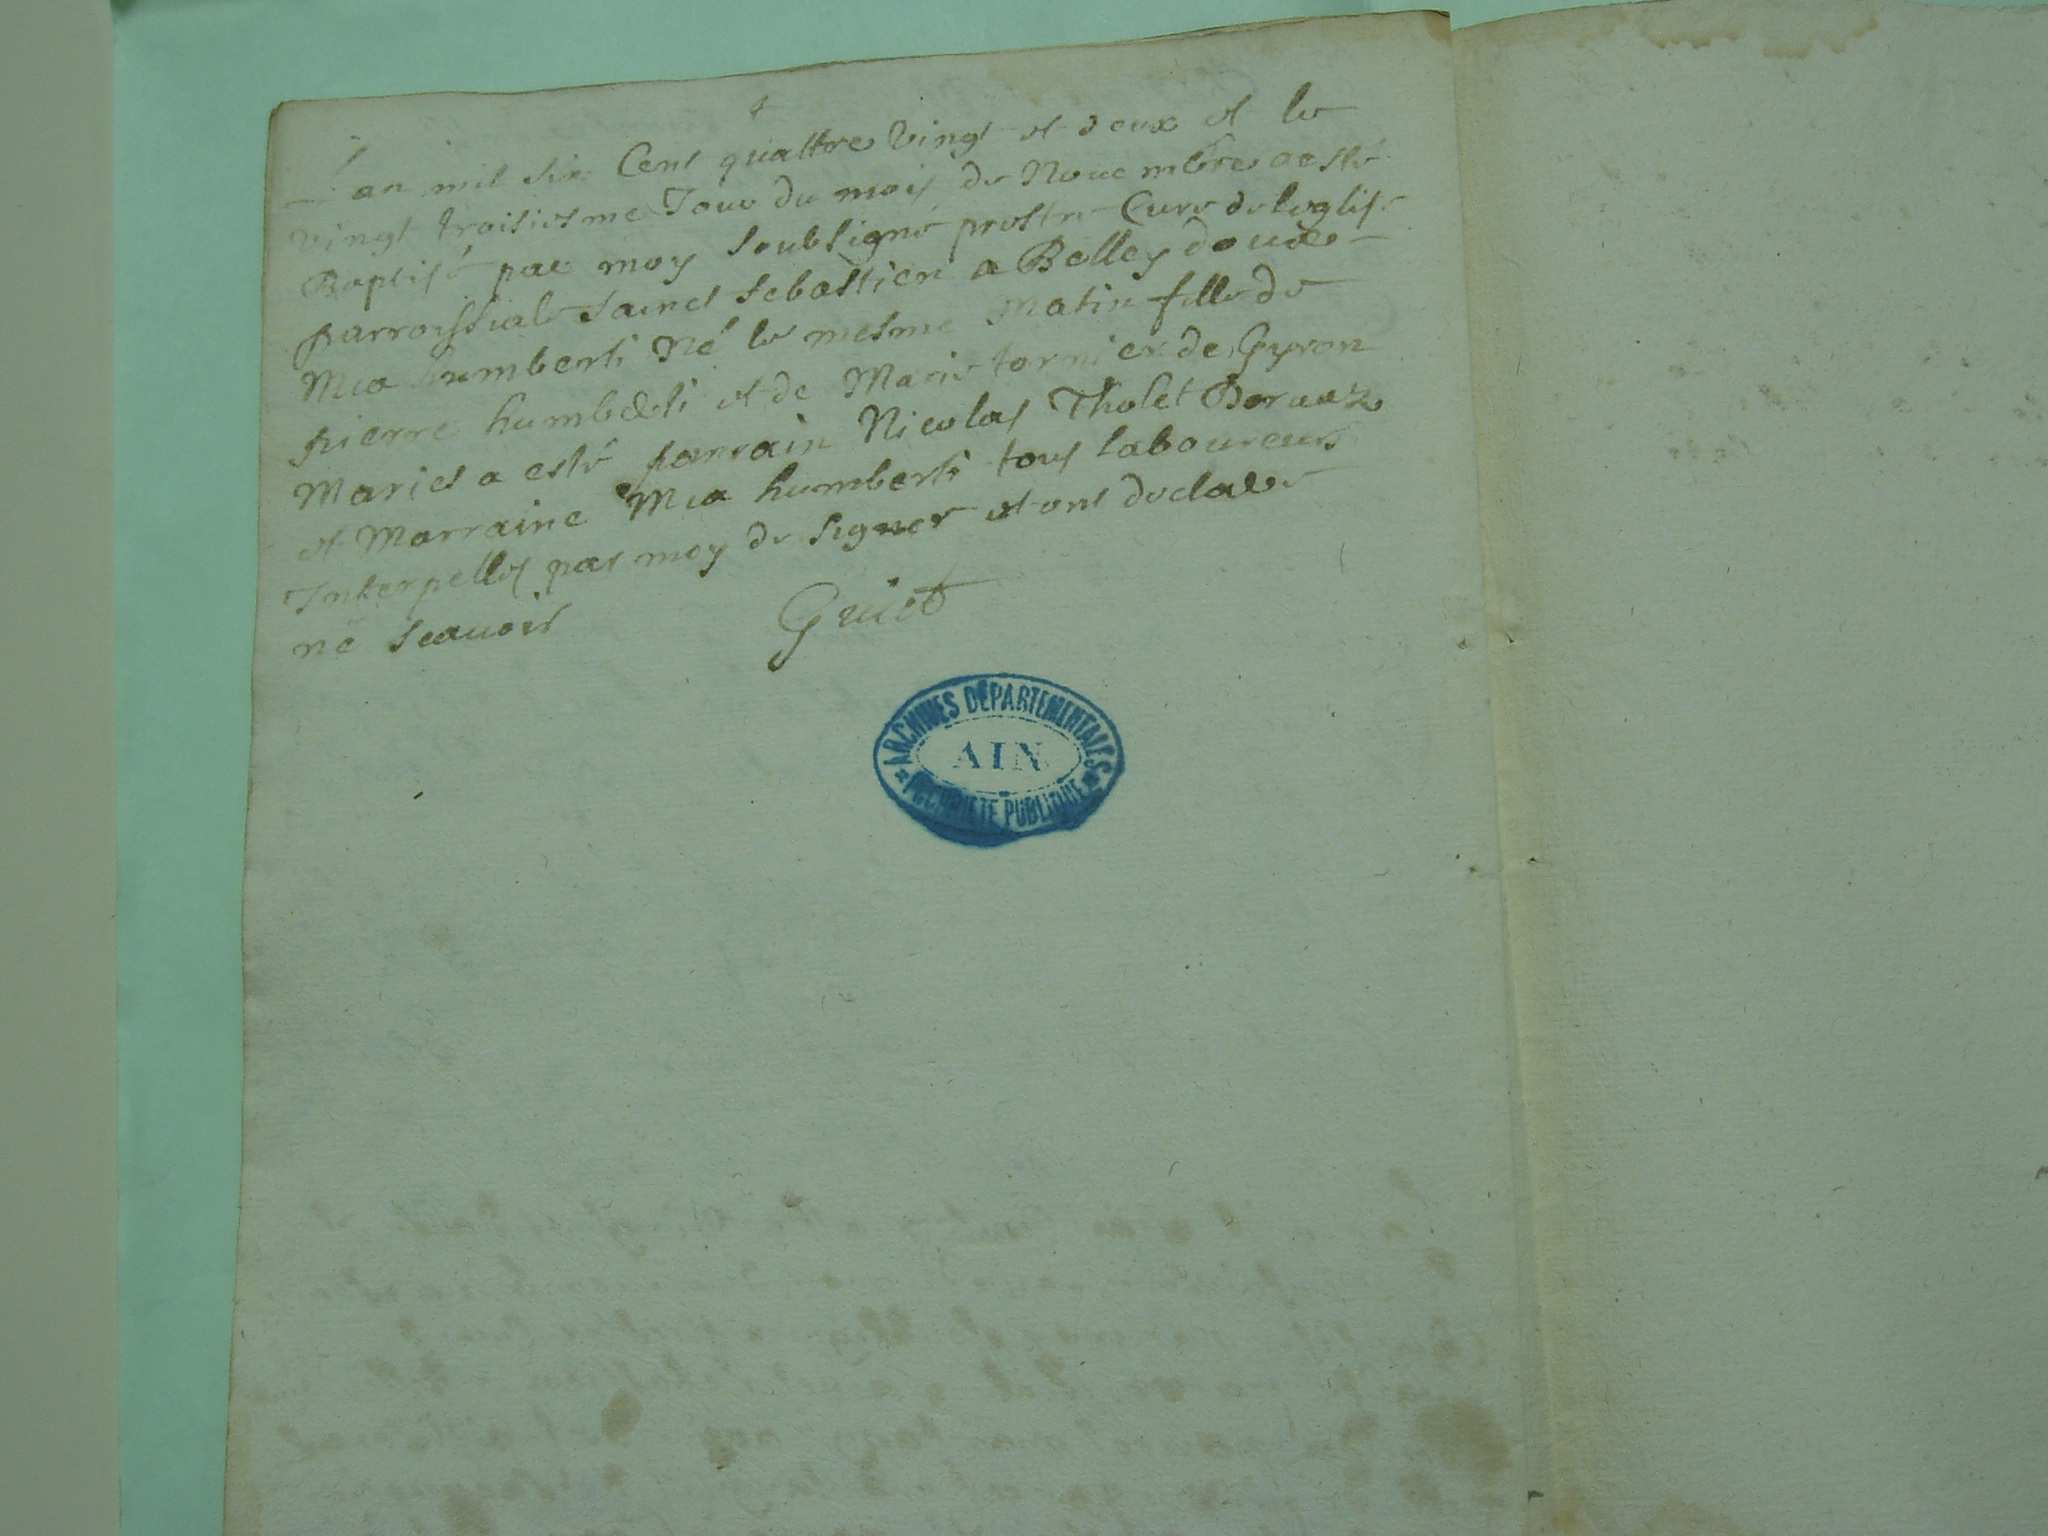 L'an mil six Cent quattre vingt et deux et le
vingt troisiesme Jour du mois de Nouembre a esté
Baptisé par moy soubsigné prestre Curé de leglise
parroissiale Sainct Sebastien a Belley
Mia humberti Né le mesme Matin fille de
pierre humberti et de Marie tornier de Gyron
Mariés a esté parrain Nicolas Tholet
et Marraine Mia humberti tous laboureurs
Interpellés par moy de signer et ont declaré
ne scauoir
ARCHIVES DÉPARTEMENTALES
AIN
PROPRIÉTÉ PUBLIQUE